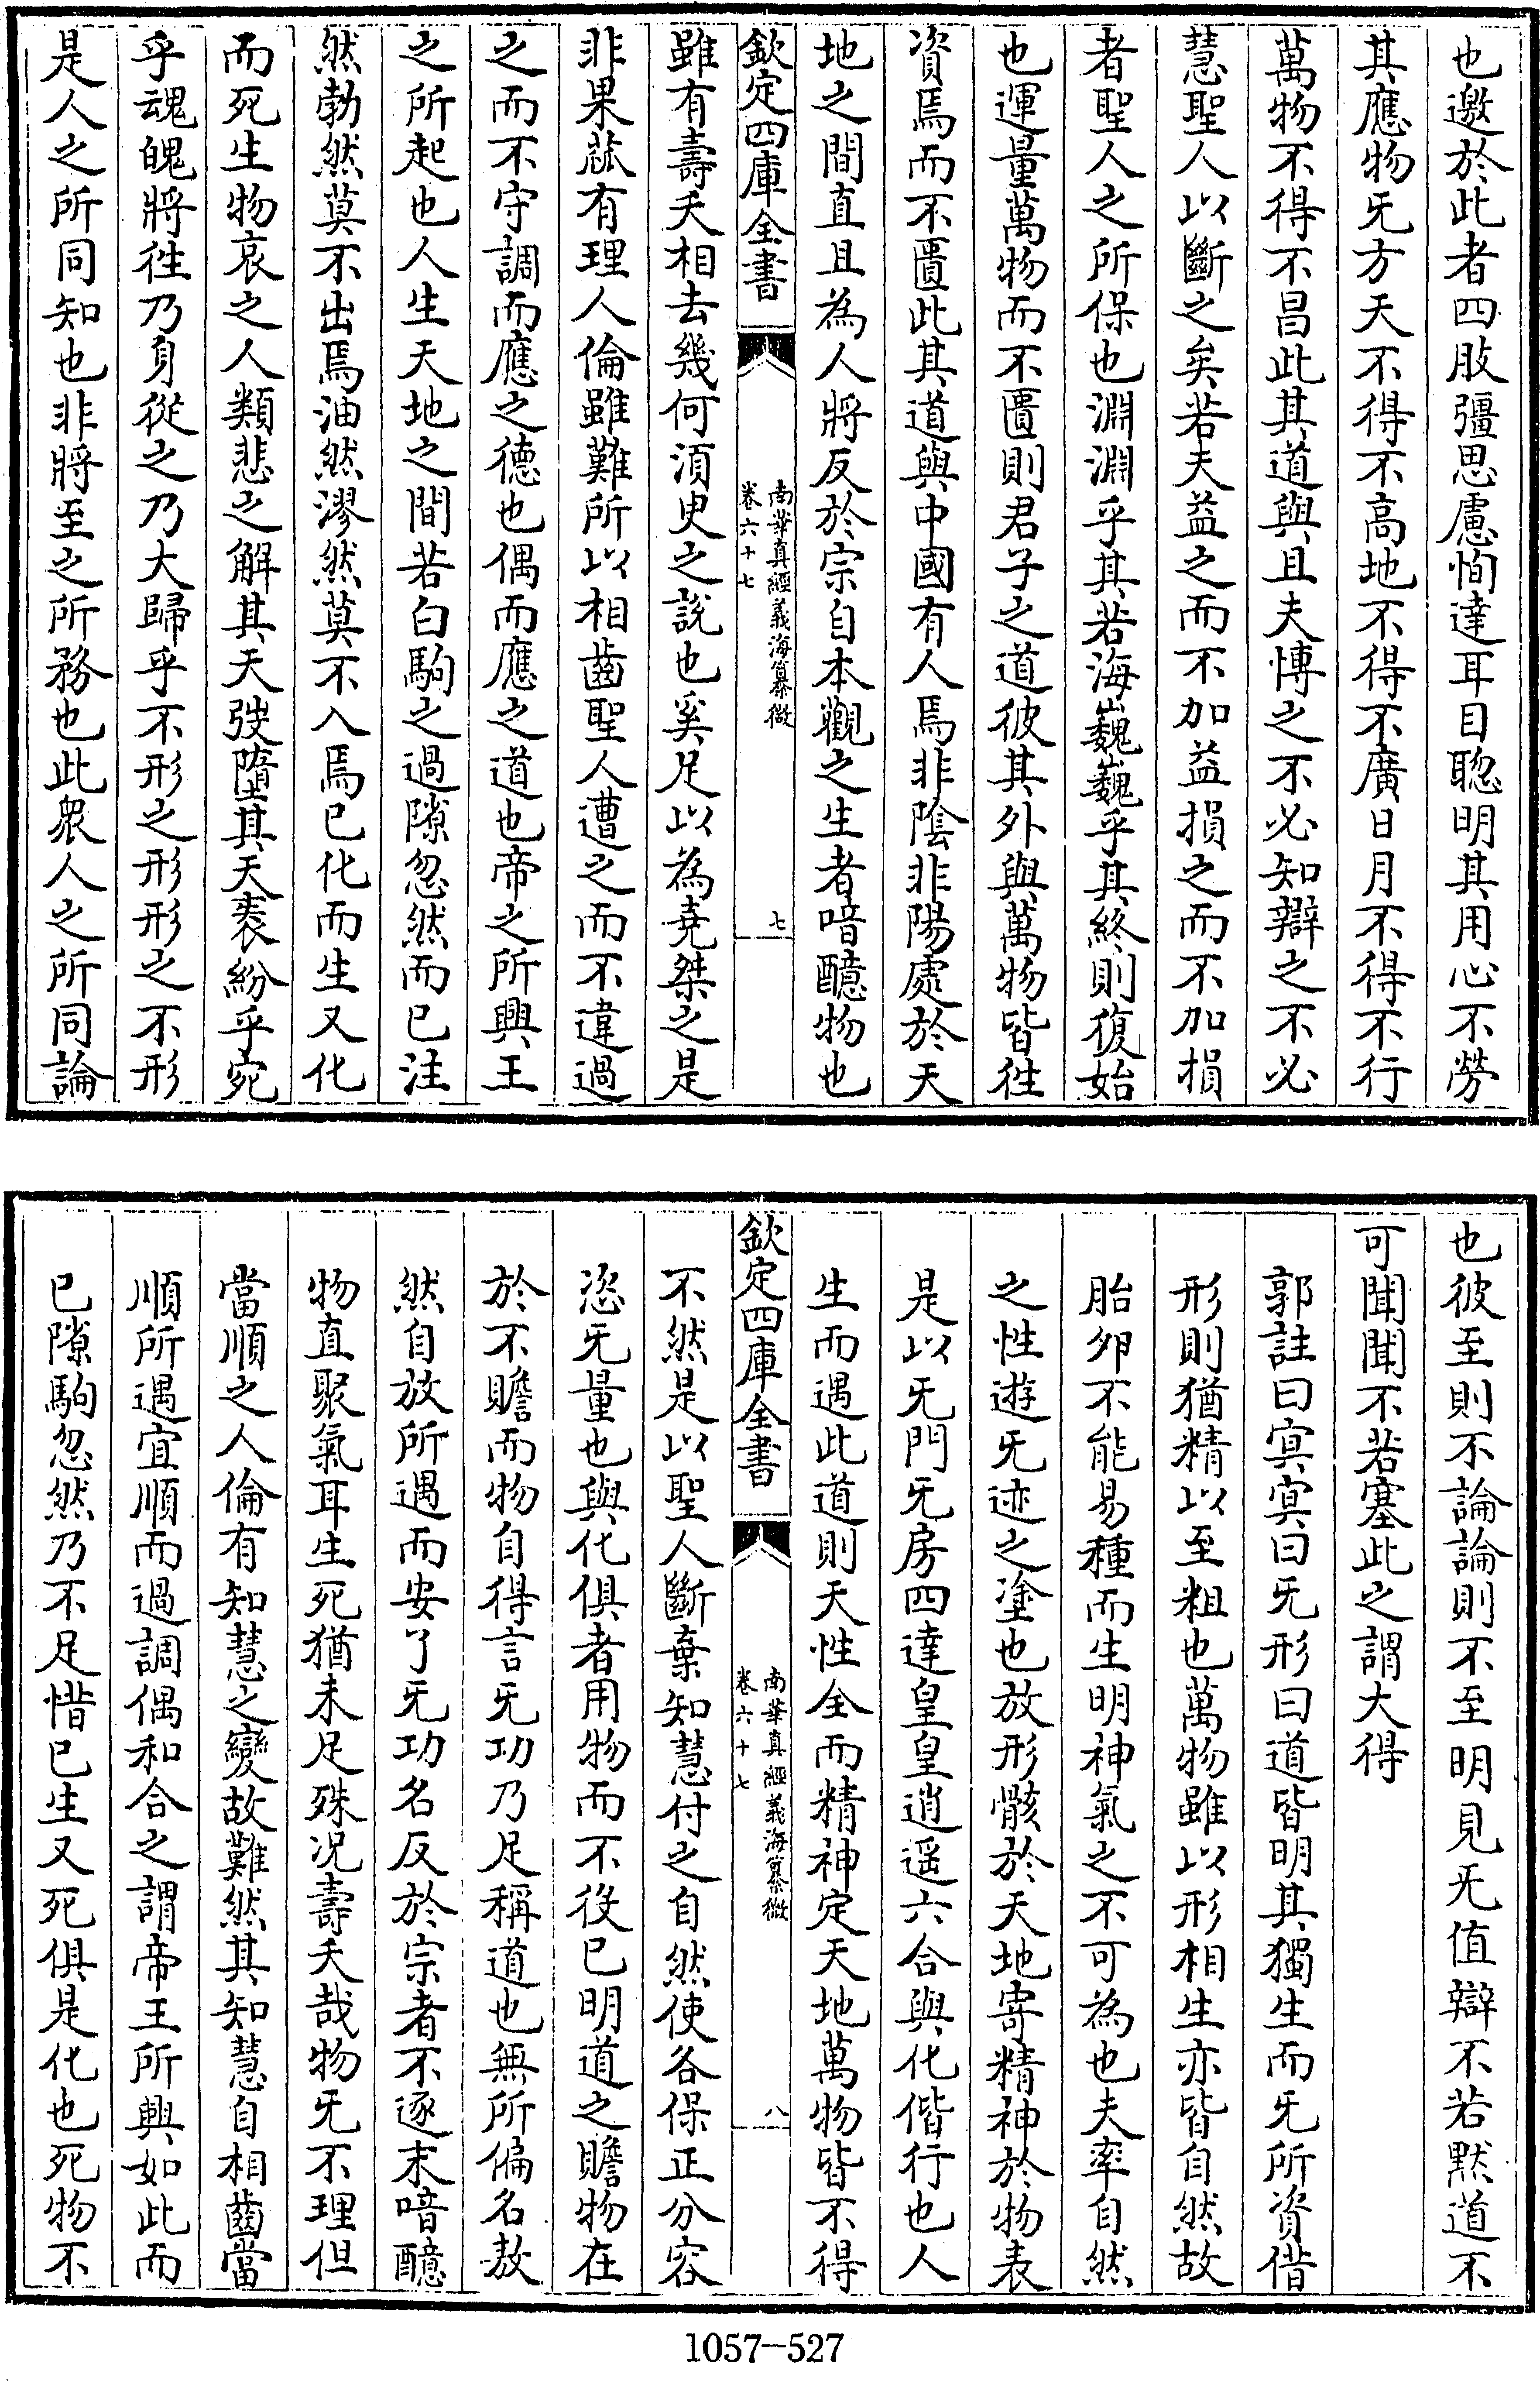 也邀於此者四肢彊思慮恂達耳目聦明其用心不勞
其應物旡方天不得不高地不得不廣日月不得不行
萬物不得不昌此其道與且夫博之不必知辯之不必
慧聖人以斷之矣若夫益之而不加益損之而不加損
者聖人之所保也淵淵乎其若海巍巍乎其終則復始
也運量萬物而不匱則君子之道彼其外與萬物皆徃
資焉而不匱此其道與中國有人焉非陰非陽處於天
地之間直且為人將反於宗自本觀之生者喑醷物也
欽定四庫全書
南華真經義海纂微
卷六十七
七
雖有壽夭相去幾何須臾之說也奚足以為堯桀之是
非果蓏有理人倫雖難所以相齒聖人遭之而不違過
之而不守調而應之德也偶而應之道也帝之所興王
之所起也人生天地之間若白駒之過隙忽然而已注
然勃然莫不出焉油然漻然莫不入焉已化而生又化
而死生物哀之人類悲之解其天弢墮其天袠紛乎宛
乎魂魄將徃乃身從之乃大歸乎不形之形形之不形
是人之所同知也非將至之所務也此衆人之所同論
也彼至則不論論則不至明見旡值辯不若默道不
可聞聞不若塞此之謂大得
郭註曰冥冥曰旡形曰道皆明其獨生而旡所資借
形則猶精以至粗也萬物雖以形相生亦皆自然故
胎卵不能易種而生明神氣之不可為也夫率自然
之性遊旡迹之塗也放形骸於天地寄精神於物表
是以旡門旡房四達皇皇逍遥六合與化偕行也人
生而遇此道則天性全而精神定天地萬物皆不得
欽定四庫全書
南華真經義海纂微
卷六十七
八
不然是以聖人斷棄知慧付之自然使各保正分容
恣旡量也與化俱者用物而不役已明道之贍物在
於不贍而物自得言旡功乃足稱道也無所偏名敖
然自放所遇而安了旡功名反於宗者不逐末喑醷
物直聚氣耳生死猶未足殊况壽夭哉物旡不理但
當順之人倫有知慧之變故難然其知慧自相齒當
順所遇宜順而過調偶和合之謂帝王所興如此而
已隙駒忽然乃不足惜已生又死俱是化也死物不
1057-527